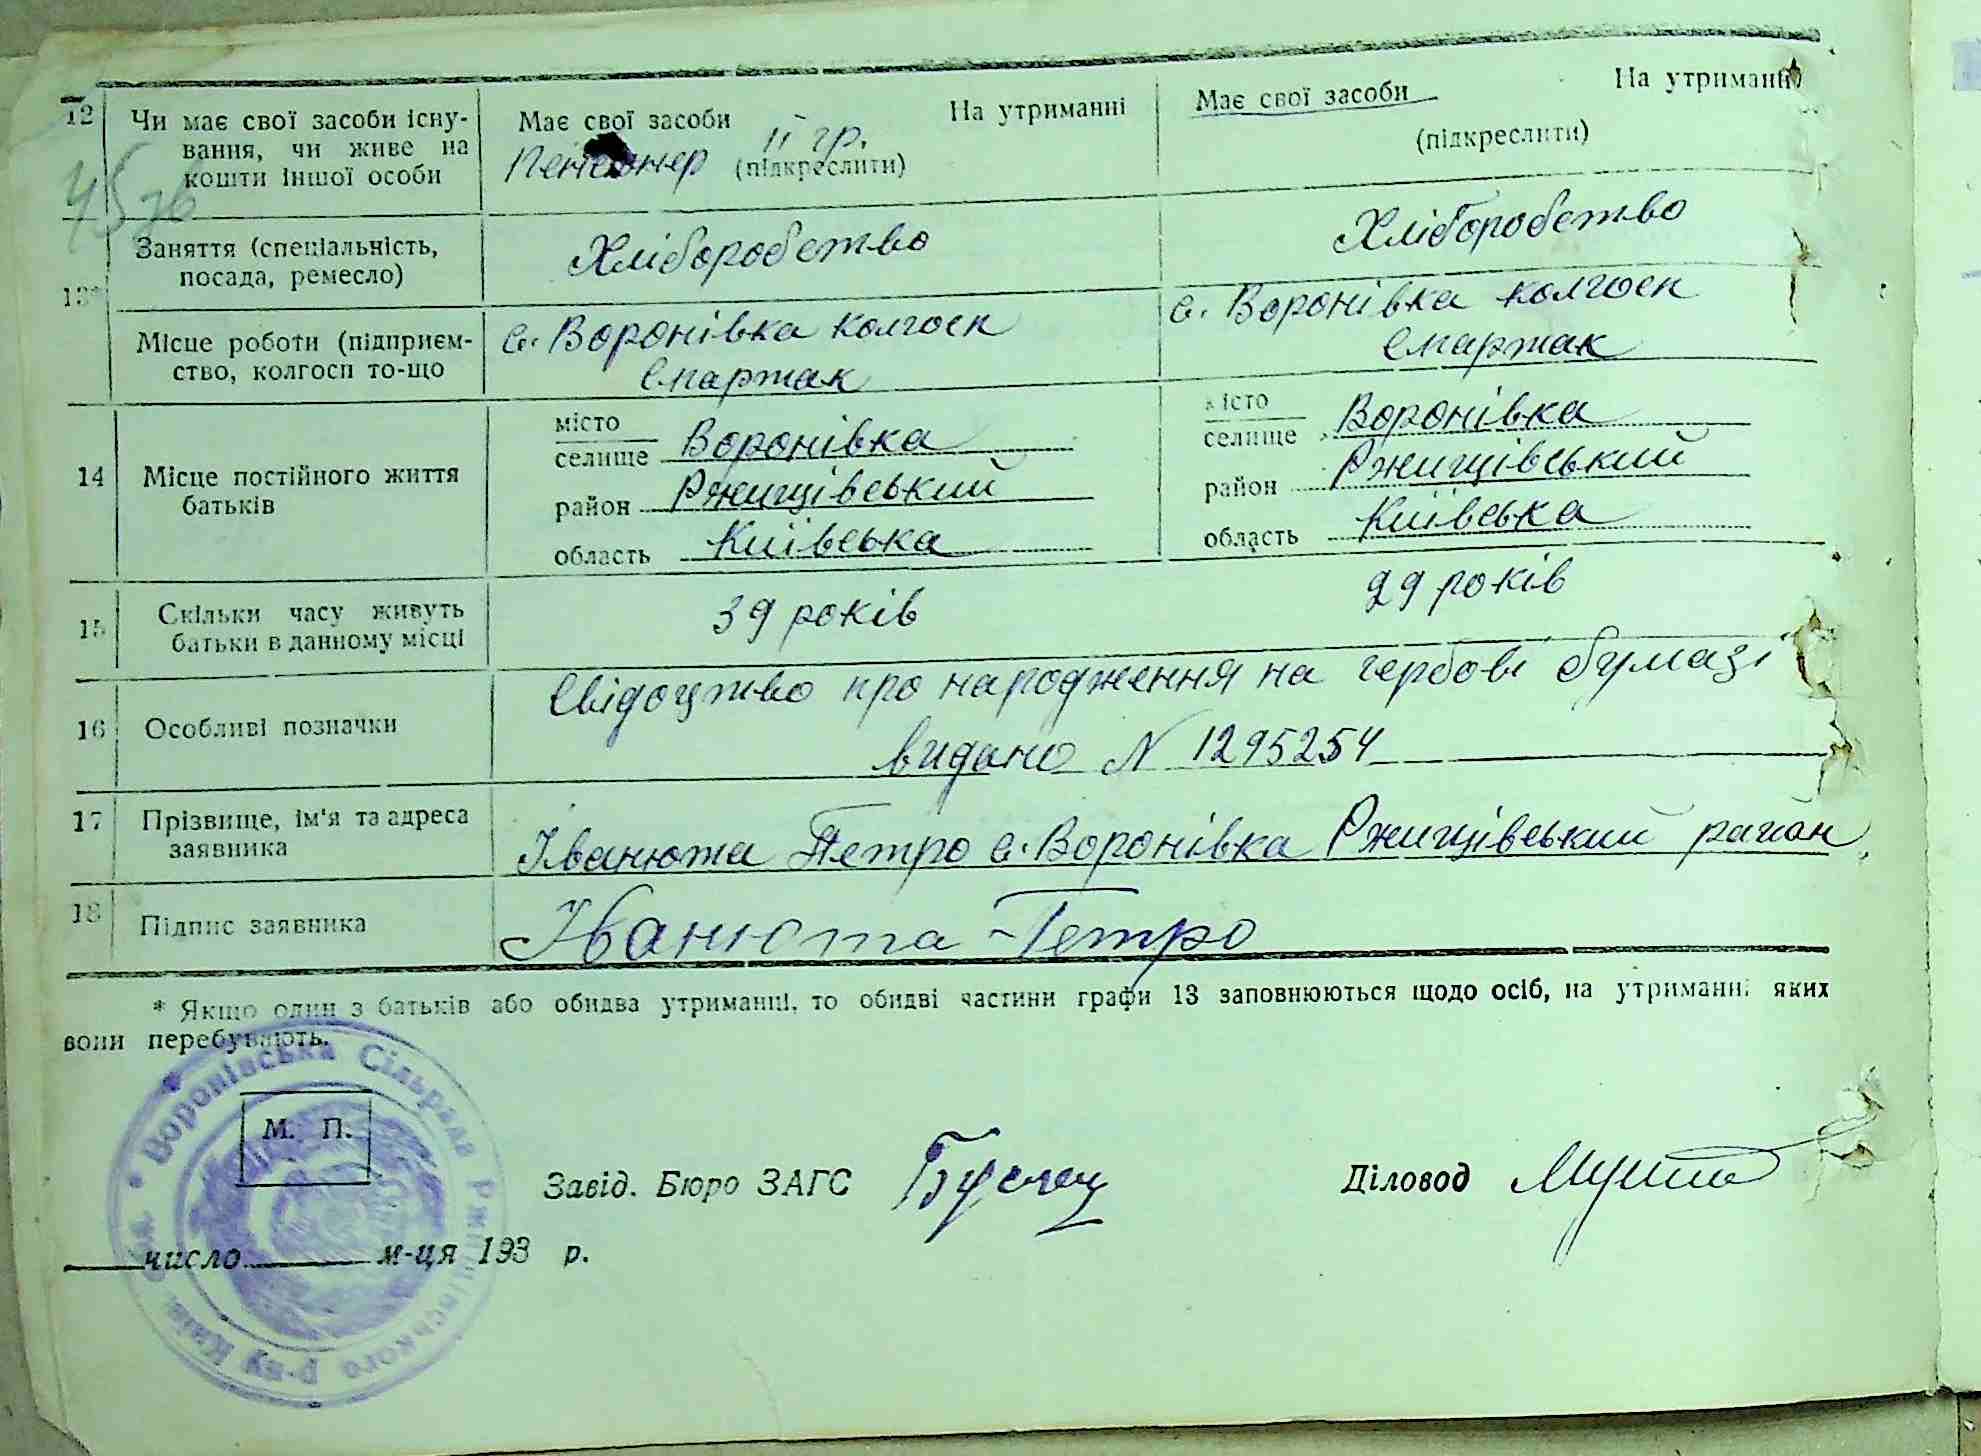 12
Чи має свої засоби існу-
вання, чи живе на
кошти іншої особи
Має свої засоби На утриманні
Пенсіонер ІІ гр.
(підкреслити)
Має свої засоби На утриманні
(підкреслити)
13*
Заняття (спеціальність,
посада, ремесло)
Хліборобство
Хліборобство
Місце роботи (підприєм-
ство, колгосп то-що
с. Воронівка колгосп
Спартак
с. Воронівка колгосп
Спартак
14
Місце постійного життя
батьків
місто
селище Воронівка
район Ржищівський
область Київська
місто
селище Воронівка
район Ржищівський
область Київська
15
Скільки часу живуть
батьки в данному місці
39 років
29 років
16
Особливі позначки
Свідоцтво про народження на гербові бумазі
видано N 1295254
17
Прізвище, ім'я та адреса
заявника
Іванюта Петро с. Воронівка Ржищівський район
18
Підпис заявника
Іванюта Петро
* Якщо один з батьків або обидва утриманці, то обидві частини графи 13 заповнюються щодо осіб, на утриманні яких
вони перебувають.
Воронівська Сільрада Ржищівського р-ну Київ.
М. П.
Завід. Бюро ЗАГС
Діловод
число м-ця 193 р.